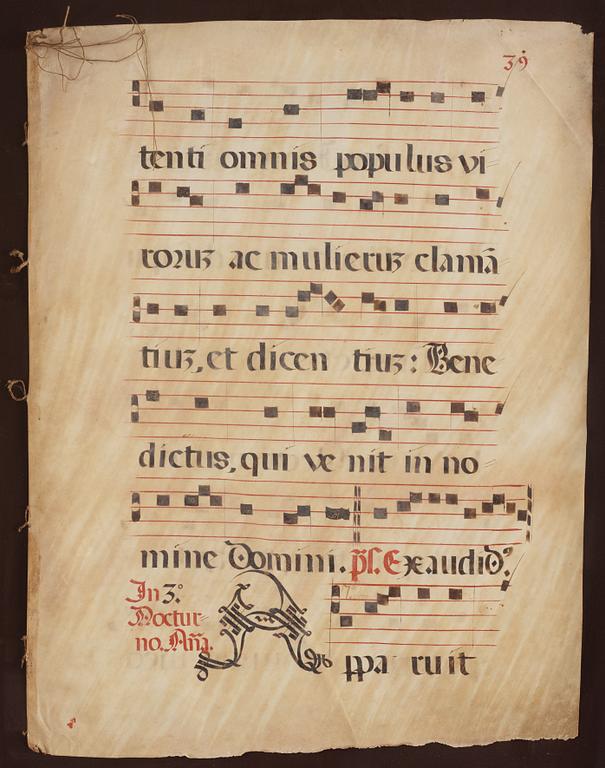 39
tenti omnis populus vi
roruʒ ac mulieruʒ clamā
tiuʒ, et dicen tiuʒ: Bene
dictus, qui ve nit in no
mine Domini. p̄s. Exaudiɔ̃.
In 3.º
Noctur-
no. Añā.
A ppa ruit